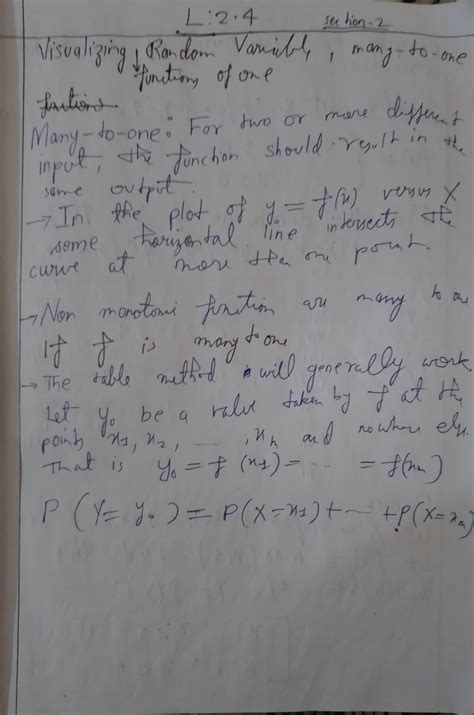 L: 2.4 section-2
Visualizing Random Variable, many-to-one
functions of one
function
Many-to-one: For two or more different
input, the function should result in the
same output.
→ In the plot of y = f(x) versus X
some horizontal line intersects the
curve at more than one point.
→ Non monotonic function are many to one
If f is many to one
→ The table method will generally work.
Let y₀ be a value taken by f at the
points x1, x2, ....., xn and nowhere else
That is y₀ = f (x1) = ... = f(xn)
P (Y = y₀) = P(X=x1) + ... + P(X=xn)